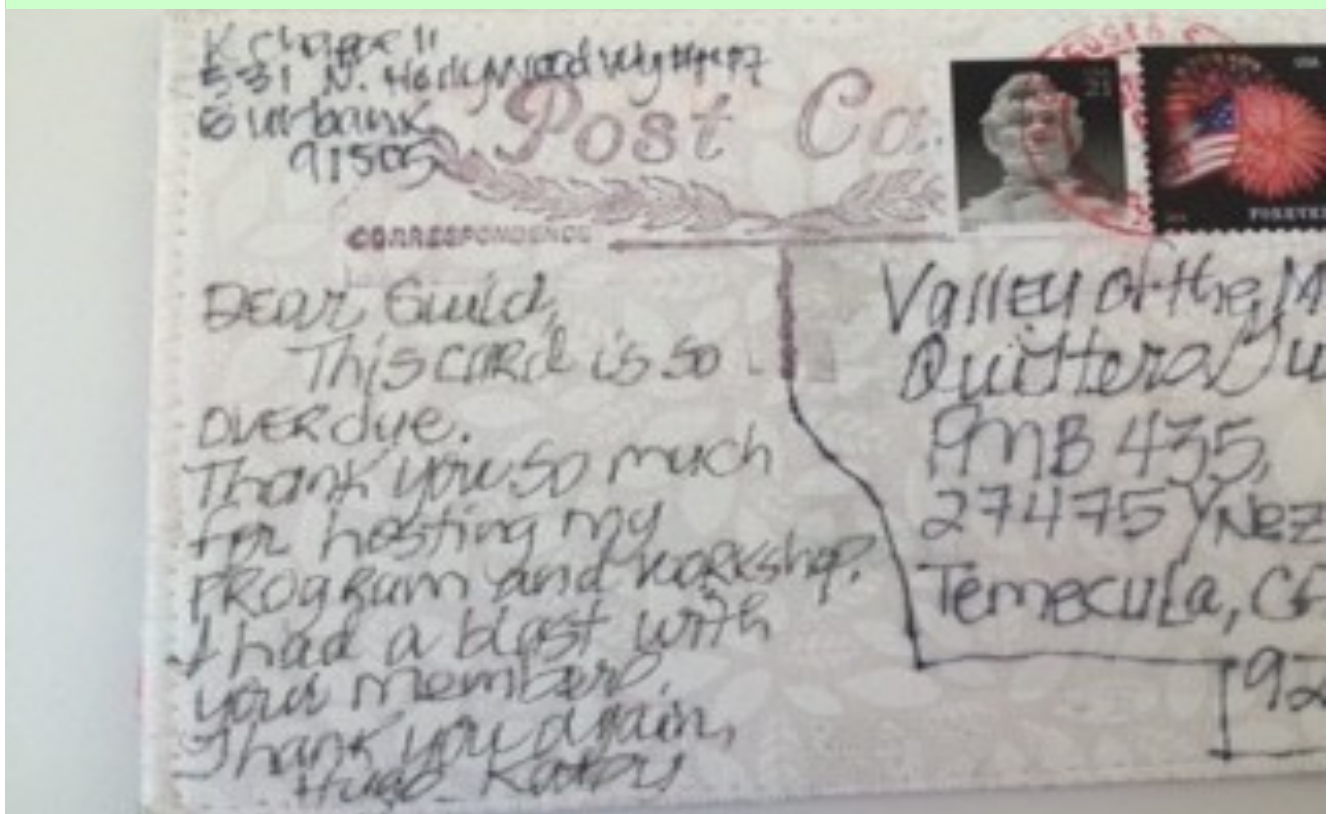 K Chappell
531 N. Hollywood Wy
Burbank
91505
Post Ca
21
USA
FOREVER
CORRESPONDENCE
DEar Guild,
This CARd is so
OVERdye.
Thank you so much
for hosting my
PROgRam and workshop.
I had a blast with
your members.
Thank you again,
Hugs
Valley of the M
Quilters Gu
PMB 435,
27475 YNez
Temecula, CA
92